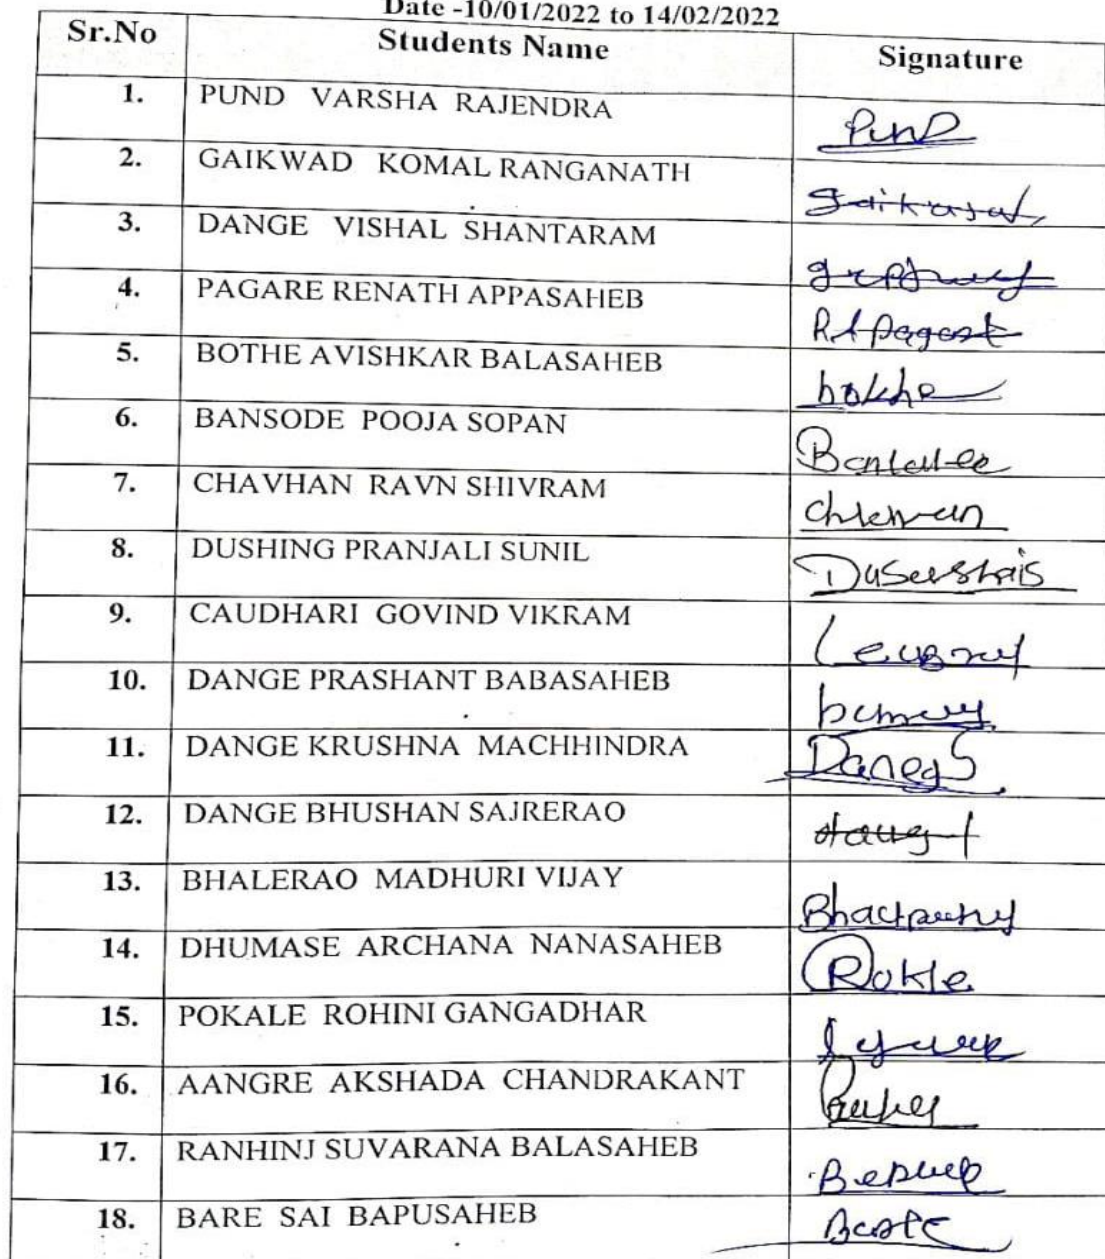 Date -10/01/2022 to 14/02/2022
Sr.No Students Name Signature
1. PUND VARSHA RAJENDRA Pund
2. GAIKWAD KOMAL RANGANATH
3. DANGE VISHAL SHANTARAM
4. PAGARE RENATH APPASAHEB
5. BOTHE AVISHKAR BALASAHEB
6. BANSODE POOJA SOPAN
7. CHAVHAN RAVN SHIVRAM
8. DUSHING PRANJALI SUNIL
9. CAUDHARI GOVIND VIKRAM
10. DANGE PRASHANT BABASAHEB
11. DANGE KRUSHNA MACHHINDRA
12. DANGE BHUSHAN SAJRERAO
13. BHALERAO MADHURI VIJAY
14. DHUMASE ARCHANA NANASAHEB
15. POKALE ROHINI GANGADHAR
16. AANGRE AKSHADA CHANDRAKANT
17. RANHINJ SUVARANA BALASAHEB
18. BARE SAI BAPUSAHEB